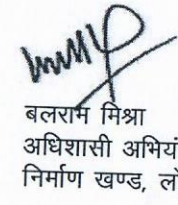 बलराम मिश्रा
अधिशासी अभियं
निर्माण खण्ड, लो